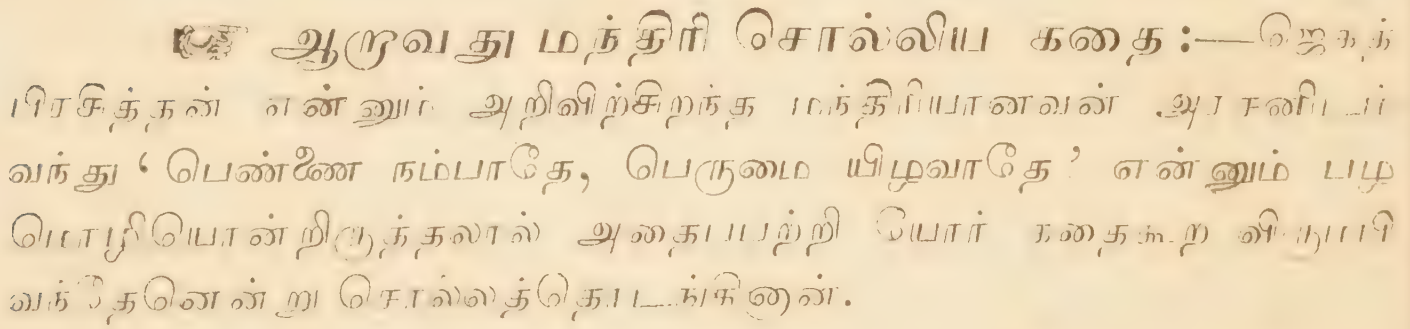 ☞ ஆறாவது மந்திரி சொல்லிய கதை:—ஜெகத்
பிரசித்தன் என்னும் அறிவிற்சிறந்த மந்திரியானவன் அரசனிடம்
வந்து ‘பெண்ணை நம்பாதே, பெருமை யிழவாதே’ என்னும் பழ
மொழியொன்றிருத்தலால் அதைப்பற்றி யோர் கதைகூற விரும்பி
வந்தேனென்று சொல்லத்தொடங்கினான்.